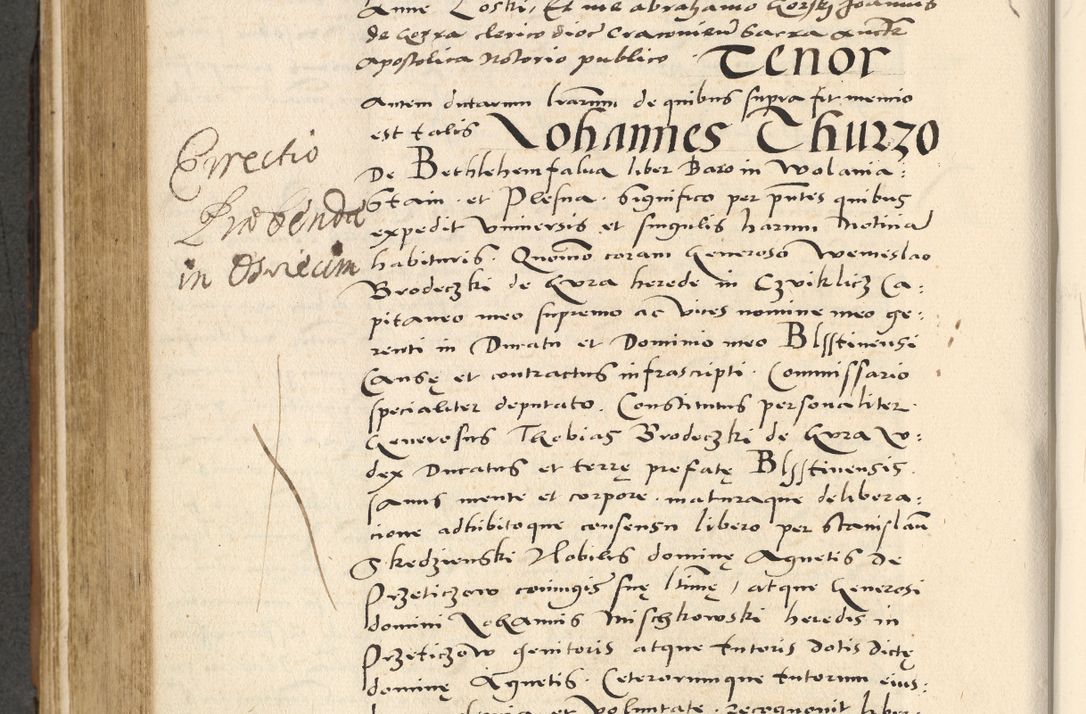 Anne Loski, Et me abrahamo Gorski Joannis
de Gozra clerico dioc Cracovien Sacra auctte
apostolica Notorio publico · Tenor
Autem dictarum lrarum de quibus supra fit mencio
est talis Johannes Thurzo
De Bethlehemfalua liber Baro in Wolania:
Stain · et Plesna · Significo per pntes quibus
expedit Vniuersis et singulis harum Noticia
habituris · Quomo coram Generoso Wenceslao
Brodeczki de Gvra herede in Czwiklicz Ca:
pitaneo meo supremo ac Vices nomine meo ge:
renti in Ducatu et Dominio meo Blsstinensi
Causę et contractus infrascripti · Commissario
specialiter deputato. Constitutus personaliter
Generosus Thobias Brodeczki de Gvra Iv:
dex Ducatus et terrę prefatę Blsstinensis.
sanus mente et corpore · maturaque delibera:
cione adhibitoque consensu libero per Stanislau
Skedzienski Nobilis dominę Agnetis De
Przeticzow coniugis suę ltimę, atque Generosi
domini Johannis Mischkowski heredis in
Przeticzow genitoris atque tutoris dotis dictę
dominę Agnetis · Ceterorumque tutorum eius:
et Voluntate · recognouit liber
Errectio
Præbendæ
in Oswiecim